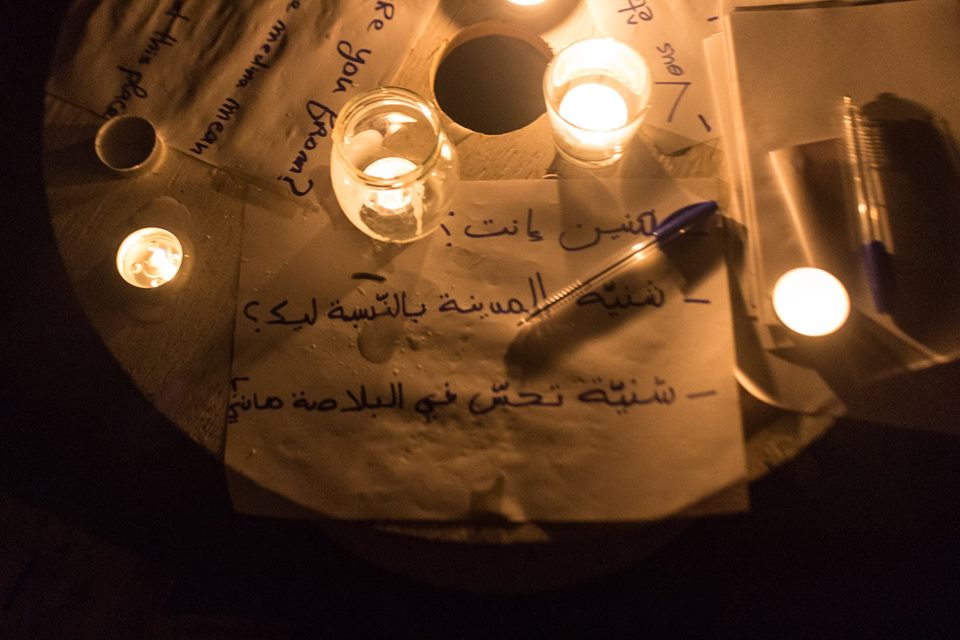 RE YOU FROM?
e medina mean
t this place
êt
Vous
- منين إنت؟
- شنيّة المدينة بالنّسبة ليك؟
- شنيّة تحسّ في البلاصة هاذي